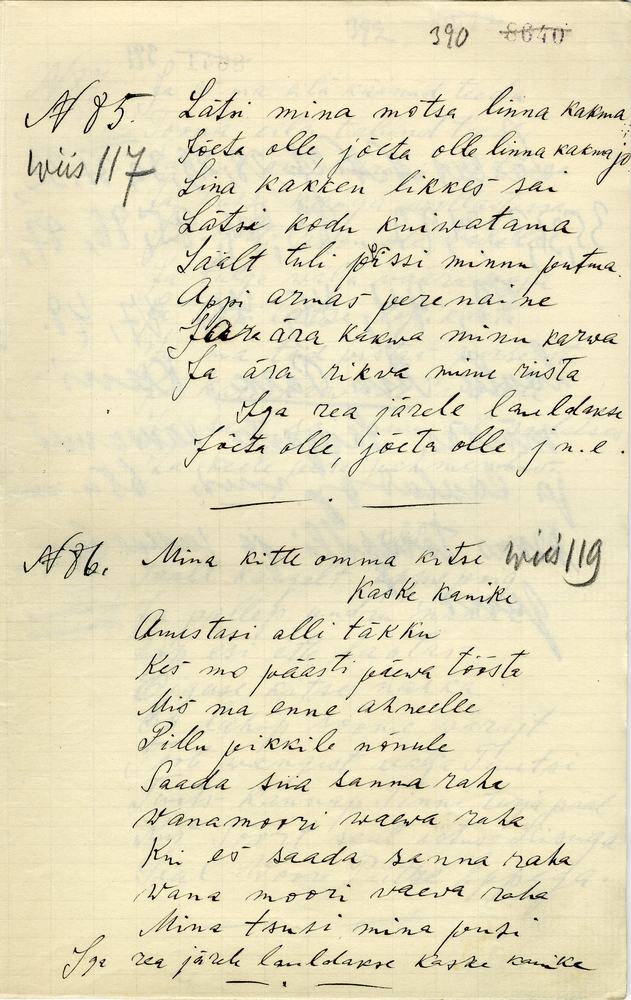 390 8640
N 85. Lätsi mina motsa linna kakma,
Wiis 117 Jõeta olle, jõeta olle linna kakma jo
Lina kakken likkes sai
Lätsi kodu kuiwatama
Säält tuli põrssi minnu putma.
Appi armas perenaine
Jara ära kakwa minu karwa
Ja ära rikva mino riista
Iga rea järele lauldakse
Jõeta olle, jõeta olle j n. e.
N 86. Mina kitte omma kitse Wiis 119
Kaske kanike
Anustasi alli täkku
Kes mo päästi päewa töösta
Mis ma enne ahneelle
Pillu pikkile nõnule
Saada siia sanna raha
Wanamoori waewa raha
Kui es saada sanna raha
Wana moori vaeva raha
Mina tsusi mina pusi
Iga rea järele lauldakse kaske kanike